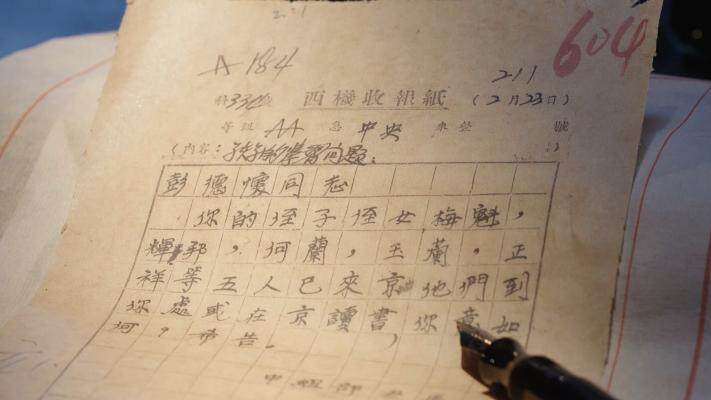 A 184
604
211
特334收 西機收報紙 (2月23日)
等級 AA 急 中央 來 號
(內容: 子女的學習问題。)
彭德懷同志
你的侄子侄女梅魁,
輝邦,何蘭,玉蘭,正
祥等五人已來京他們到
你處或在京讀書,你意如
何,希告。
中組部